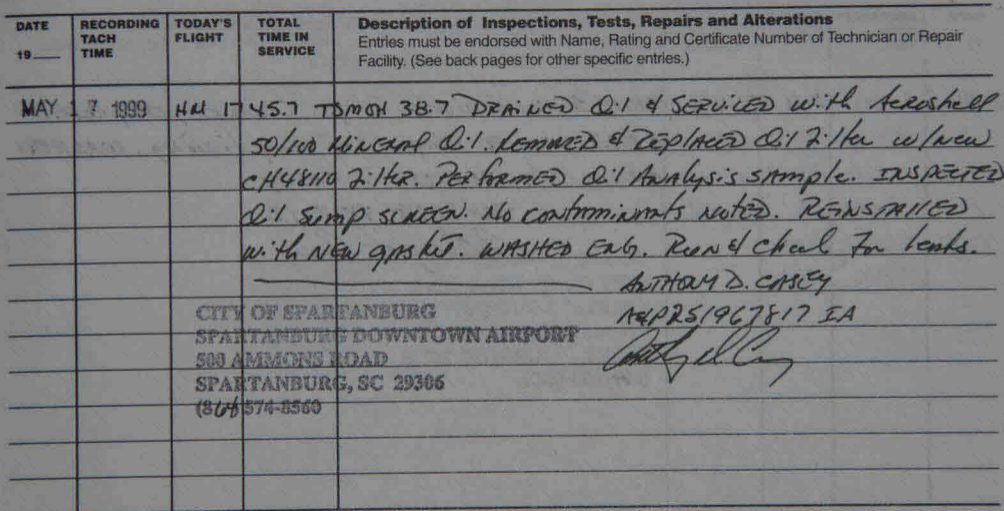 DATE
19
RECORDING TACH TIME
TODAY'S FLIGHT
TOTAL TIME IN SERVICE
Description of Inspections, Tests, Repairs and Alterations
Entries must be endorsed with Name, Rating and Certificate Number of Technician or Repair
Facility. (See back pages for other specific entries.)
MAY 17 1999 HM 1745.7 TSMOH 38.7 DRAINED Oil & SERVICED with Aeroshell
50/100 MINERAL Oil. Removed & Replaced Oil Filter w/new
CH48110 Filter. Performed Oil Analysis sample. INSPECTED
Oil Sump SCREEN. No contaminants NOTED. REINSTALLED
with NEW gasket. WASHED ENG. Run & check For leaks.
ANTHONY D. CASEY
A&P251967817 IA
CITY OF SPARTANBURG
SPARTANBURG DOWNTOWN AIRPORT
500 AMMONS ROAD
SPARTANBURG, SC 29306
(864) 574-8560